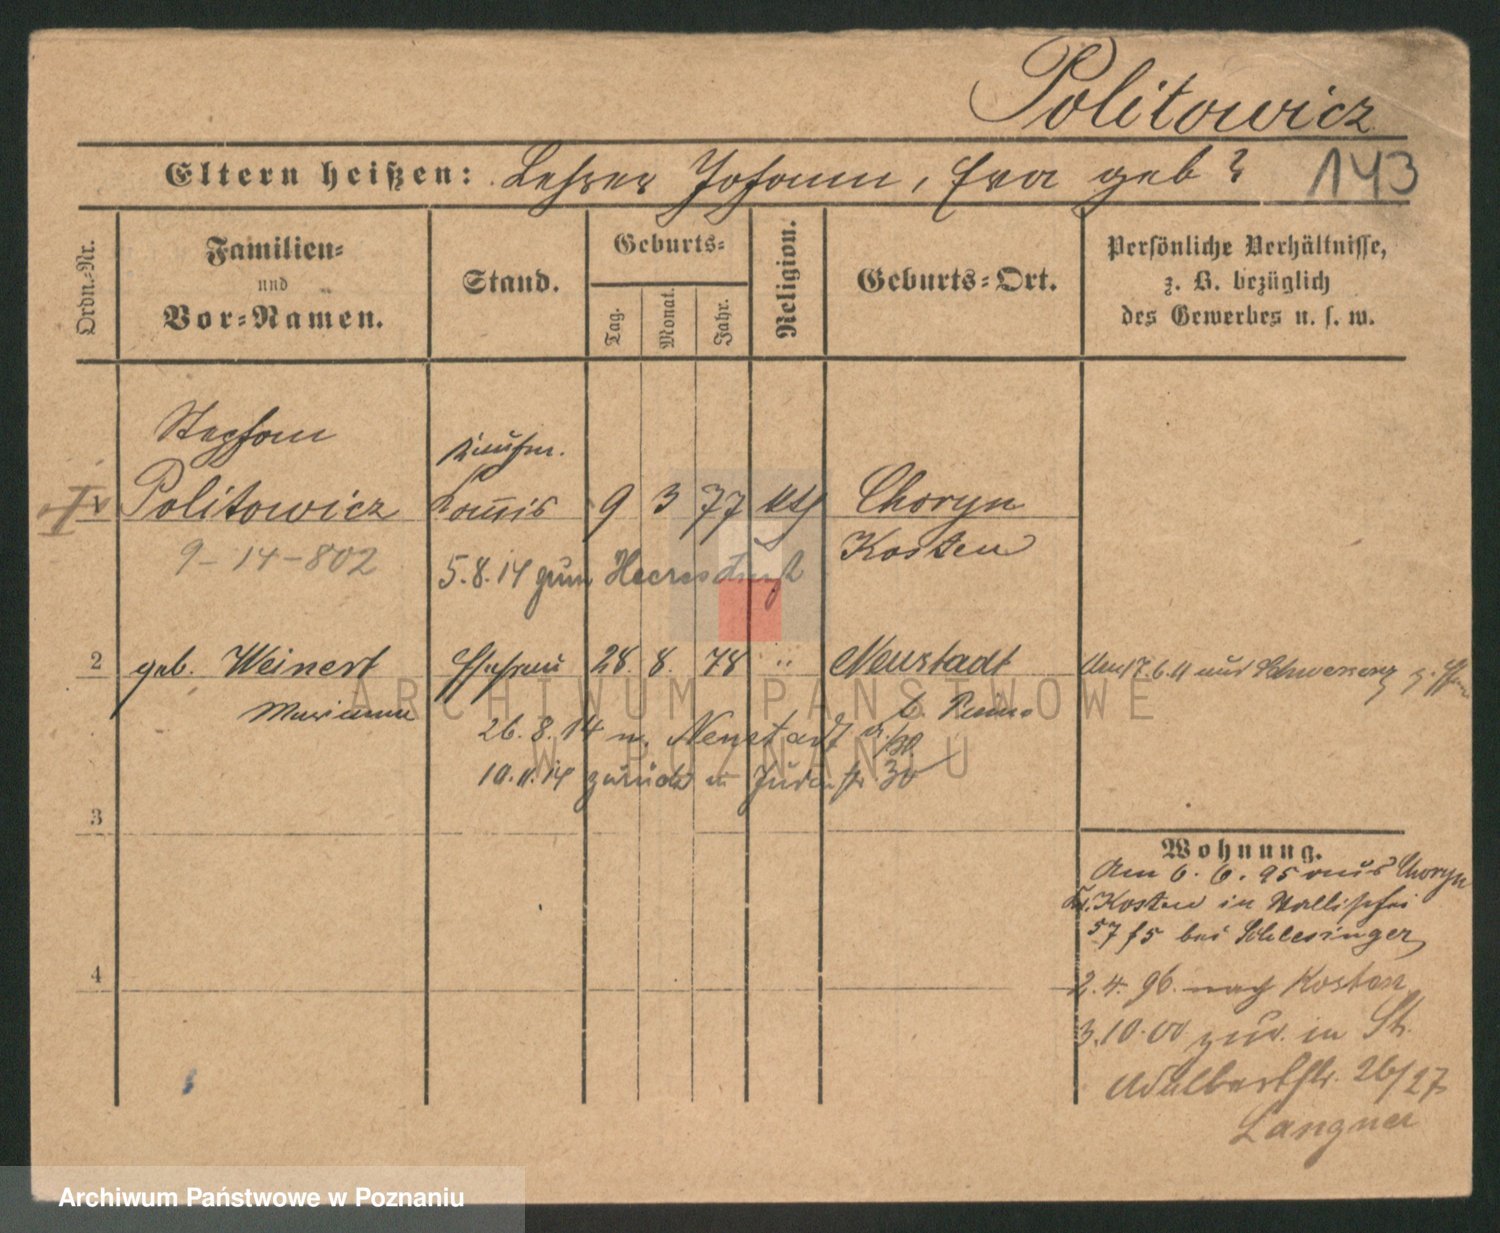 Politowicz
Eltern heißen: Lehrer Johann, Eva geb ?
143
Ordn.-Nr.
Familien-
und
Vor-Namen.
Stand.
Geburts-
Tag.
Monat.
Jahr.
Religion.
Geburts-Ort.
Persönliche Verhältnisse,
z. B. bezüglich
des Gewerbes u. s. w.
Stephan
Kaufm.
1 Politowicz Commis 9 3 77 kth Choryn
Kosten
9-14-802
5.8.14 zum Heeresdienst
2 geb. Weinert Ehefrau 28. 8. 78 " Neustadt
Marianna
Am 17.6.11 aus Schwersenz z.
26.8.14 n. Neustadt
10.11.14 zurück Judenstr 30
3
Wohnung.
Am 6.6.95 aus Choryn
Kr. Kosten in Wallischei
57 bei Schlesinger
4
2.4.96. nach Kosten
3.10.00 zur. in St.
Adalbertstr. 26/27
Langner
ARCHIWUM PAŃSTWOWE
W POZNANIU
Archiwum Państwowe w Poznaniu